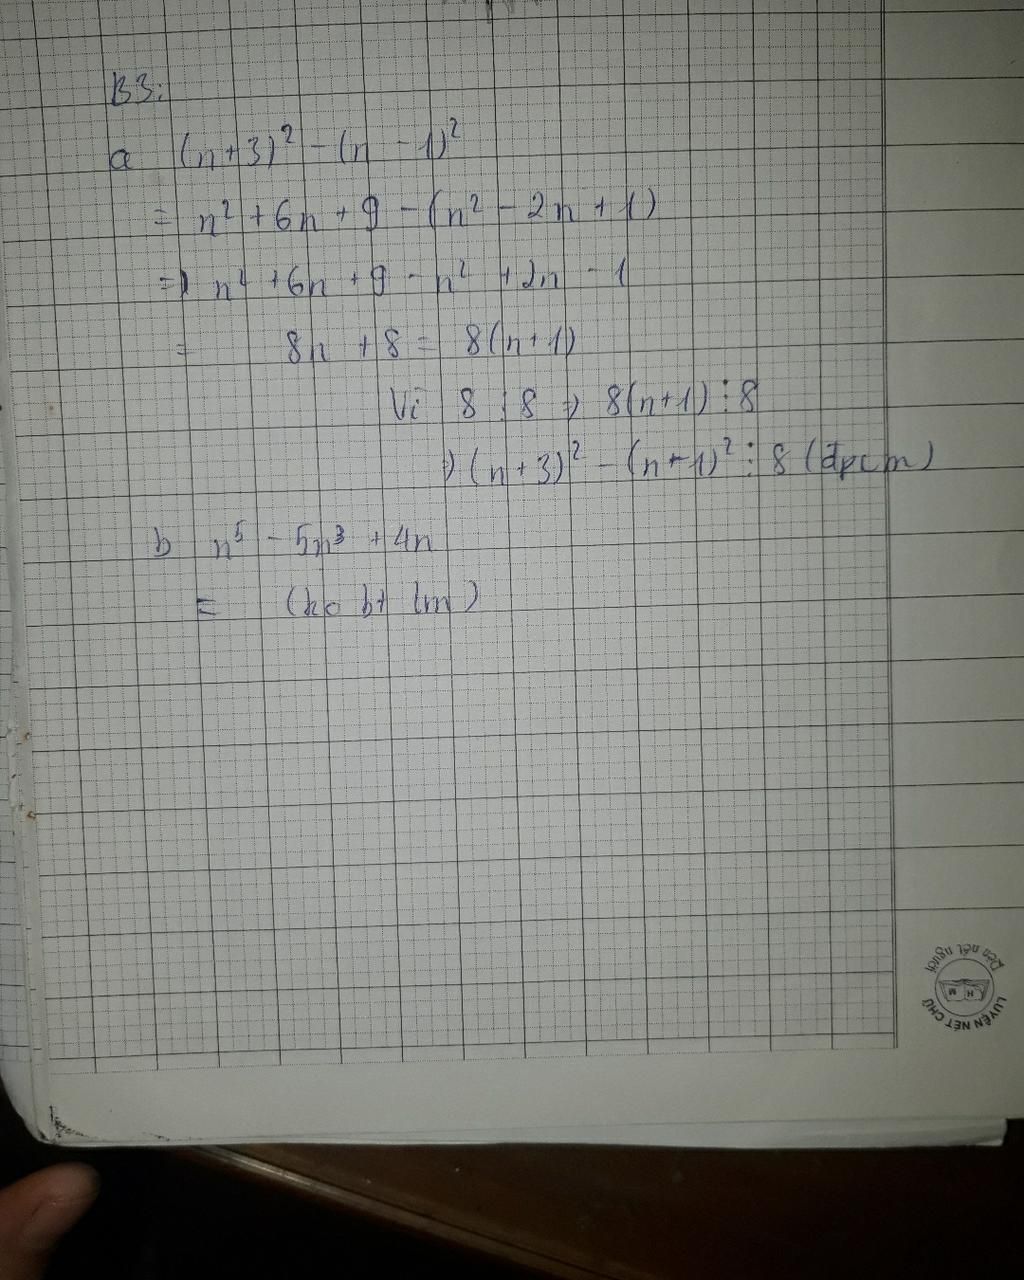 B3:
a (n+3)² - (n - 1)²
= n² + 6n + 9 - (n² - 2n + 1)
=) n² + 6n + 9 - n² + 2n - 1
= 8n + 8 = 8(n+1)
Vì 8 ⋮ 8 => 8(n+1) ⋮ 8
=) (n+3)² - (n-1)² ⋮ 8 (đpcm)
b n⁵ - 5n³ + 4n
= (ko bt lm)
LUYỆN NÉT CHỮ
Rèn nết người
H M